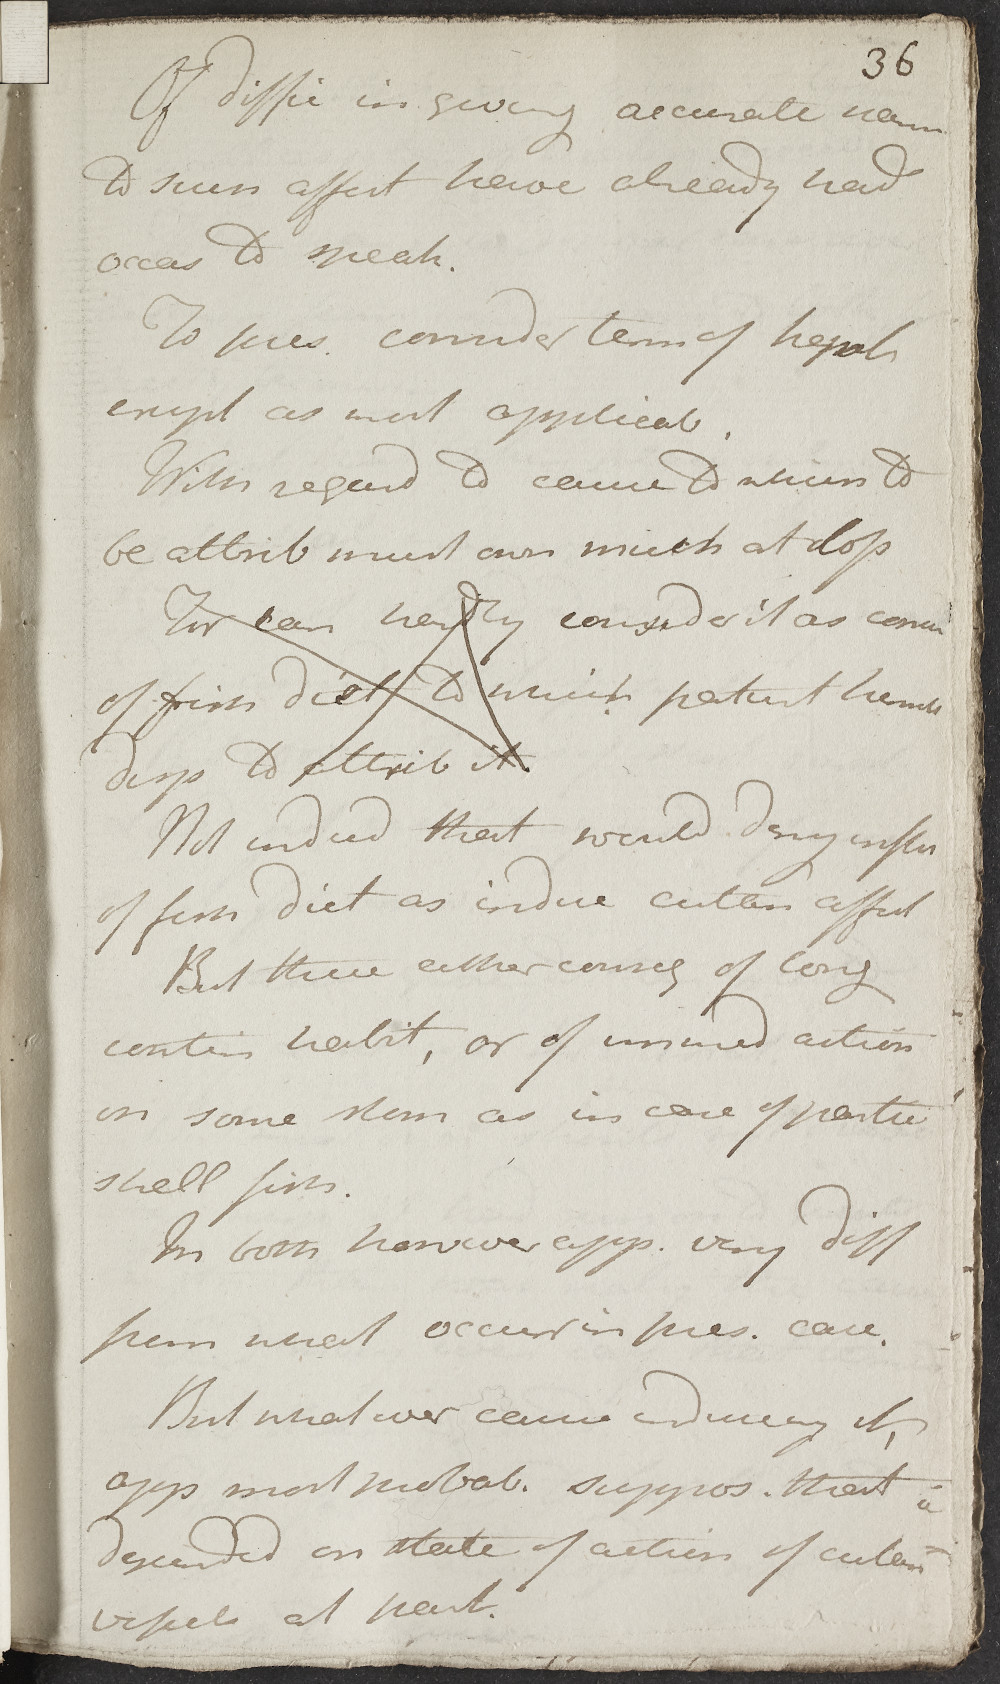 36
Of diffic in giving accurate nam
to such affect have already had
occas to speak.
To pres. consider term of hepat
erupt as most applicab.
With regard to cause to which to
be attrib must own much at loss
For can hardly consider it as conseq
of fish diet to which patient
disp to attrib it.
Not indeed that would deny influ
of fish diet as induc cutan affect
But these either conseq of long
contin habit, or of unusual action
on some stom as in case of partic
shell fish.
In both however app. very diff
from what occurs in pres. case.
But whatever cause inducing it,
app most probab. suppos. that it
depended on state of action of cutan
vessels at part.